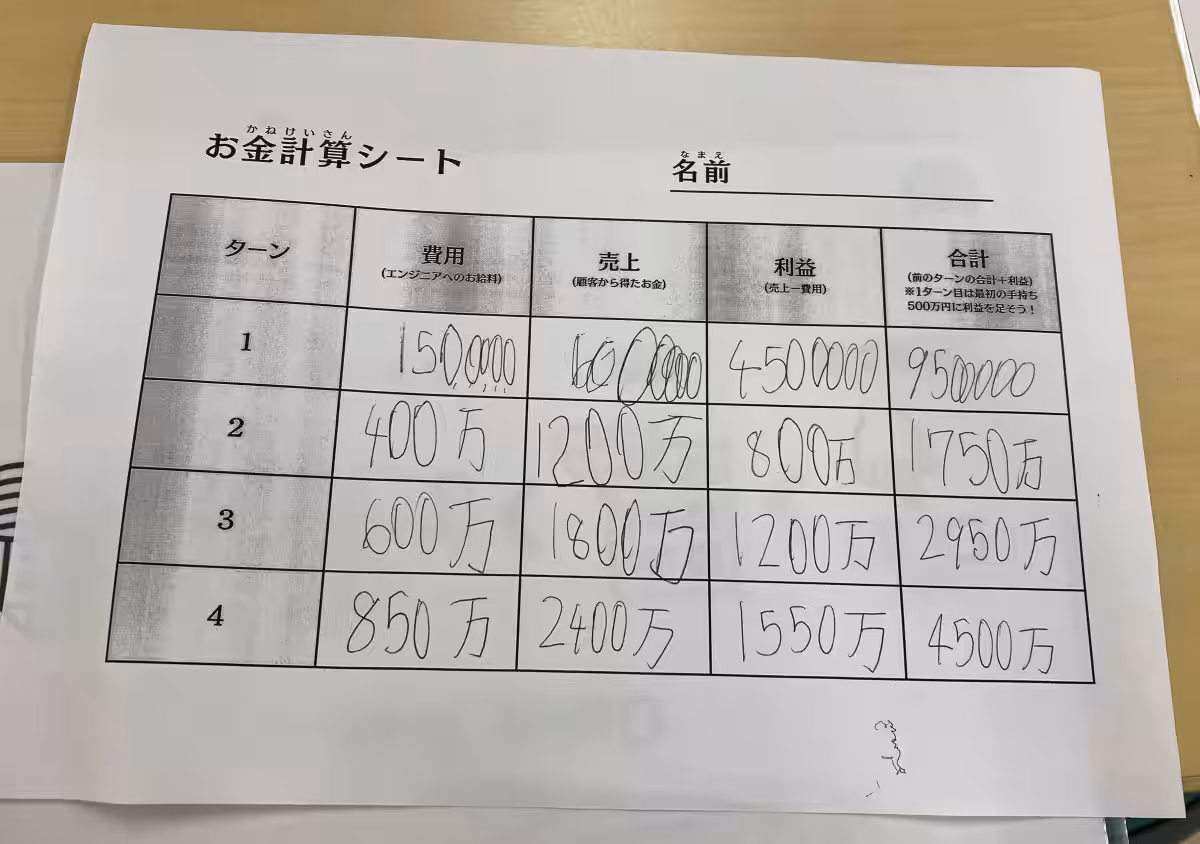 かねけいさん
お金計算シート
なまえ
名前
ターン 費用 売上 利益 合計
(エンジニアへのお給料) (顧客から得たお金) (売上ー費用) (前のターンの合計+利益)
※1ターン目は最初の手持ち
500万円に利益を足そう!
1 1500000 6000000 4500000 9500000
2 400万 1200万 800万 1750万
3 600万 1800万 1200万 2950万
4 850万 2400万 1550万 4500万